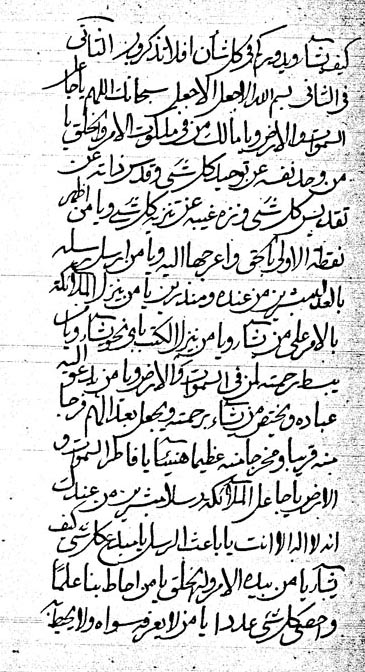 كيف يشاء ويدوركم في كل شأن افلا تذكرون الثاني
في الثاني بسم الله الاجعل الاجعل سبحانك اللهم يا جاعل
السموات والارض ويا مالك من في ملكوت الامر والخلق يا
من وحد نفسه عن توحيد كل شيء وقدس ذاته عن
تقديس كل شيء ونزه غيبه عن تنزيه كل شيء ويا من اظهر
نقطة الاولى بالحق واعرجها اليه ويا من ارسل رسله
بالعدل مبشرين من عنده ومنذرين يا من ينزل الملائكة
بالامر على من يشاء ويا من ينزل الكتب باي نحو يشاء ويا من
يبسط رحمته لمن في السموات والارض ويا من يدعو اليه
عباده ويختص من يشاء برحمته ويجعل بعد الهم فرجا
منه قريبا ومخرجا منه عظيما هنيئا يا فاطر السموات و
الارض يا جاعل الملائكة رسلا مبشرين من عندك
انه لا اله الا انت يا باعث الرسل يا مبدع كل شيء كيف
يشاء يا من بيده الامر والخلق يا من احاط بنا علما
واحصى كل شيء عددا يا من لا يعرفه سواه ولا يحيط به